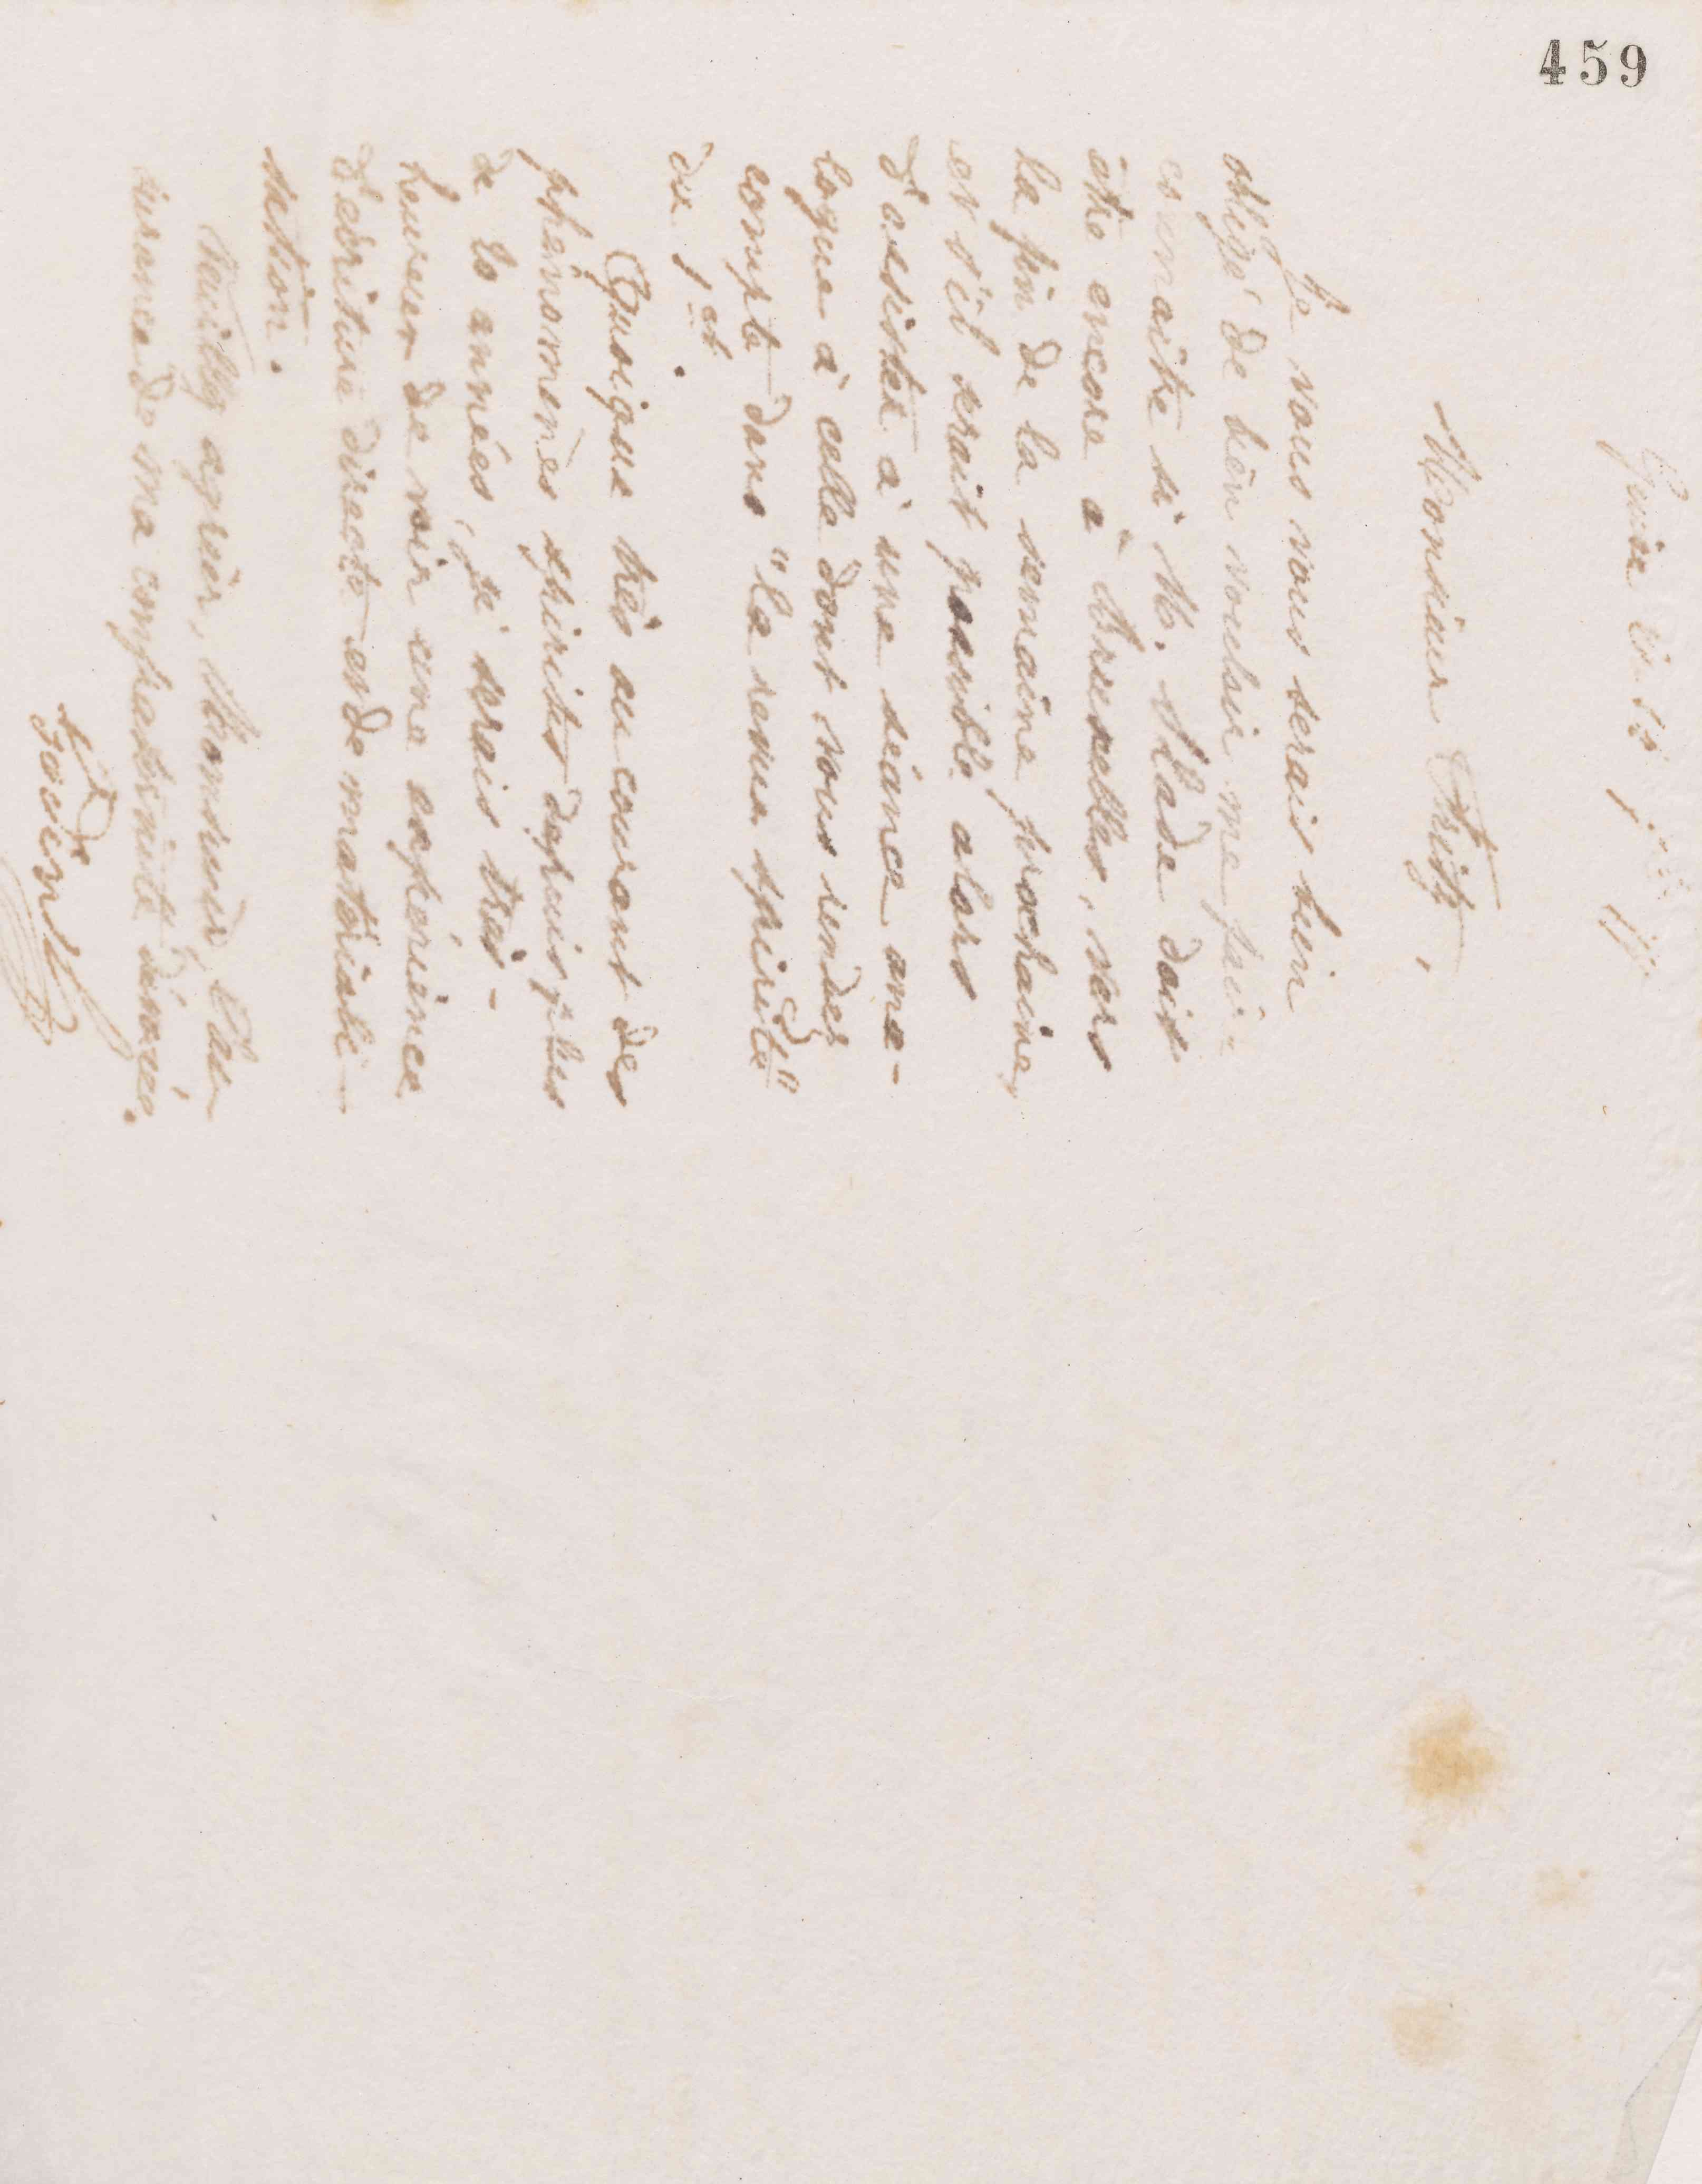 459
Guise
Monsieur Fritz,
Je vous vous serais bien
obligé de bien vouloir me faire
connaître si M. Slade doit
être encore à Bruxelles, vers
la fin de la semaine prochaine,
et s'il serait possible alors
d'assister à une séance ana-
logue à celle dont vous rendez
compte dans "la revue spirite"
du 1er.
Quoique très au courant des
phénomènes spirites depuis plus
de 20 années, je serais très-
heureux de voir une expérience
d'écriture directe et de matériali-
sation.
Veuillez agréer, Monsieur, l'as-
surance de ma
Godin